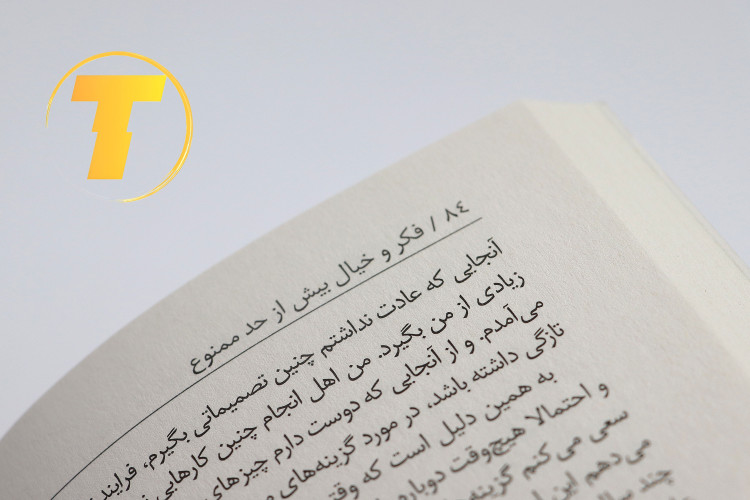 T
٨٤ / فکر و خیال بیش از حد ممنوع
آنجایی که عادت نداشتم چنین تصمیماتی بگیرم، فرایند
زیادی از من بگیرد. من اهل انجام چنین کارهایی
می‌آمدم. و از آنجایی که دوست دارم چیزهای
تازگی داشته باشد، در مورد گزینه‌های
به همین دلیل است که وقتی
و احتمالا هیچ‌وقت دوباره
سعی می‌کنم گزینه
می‌دهم این
چند